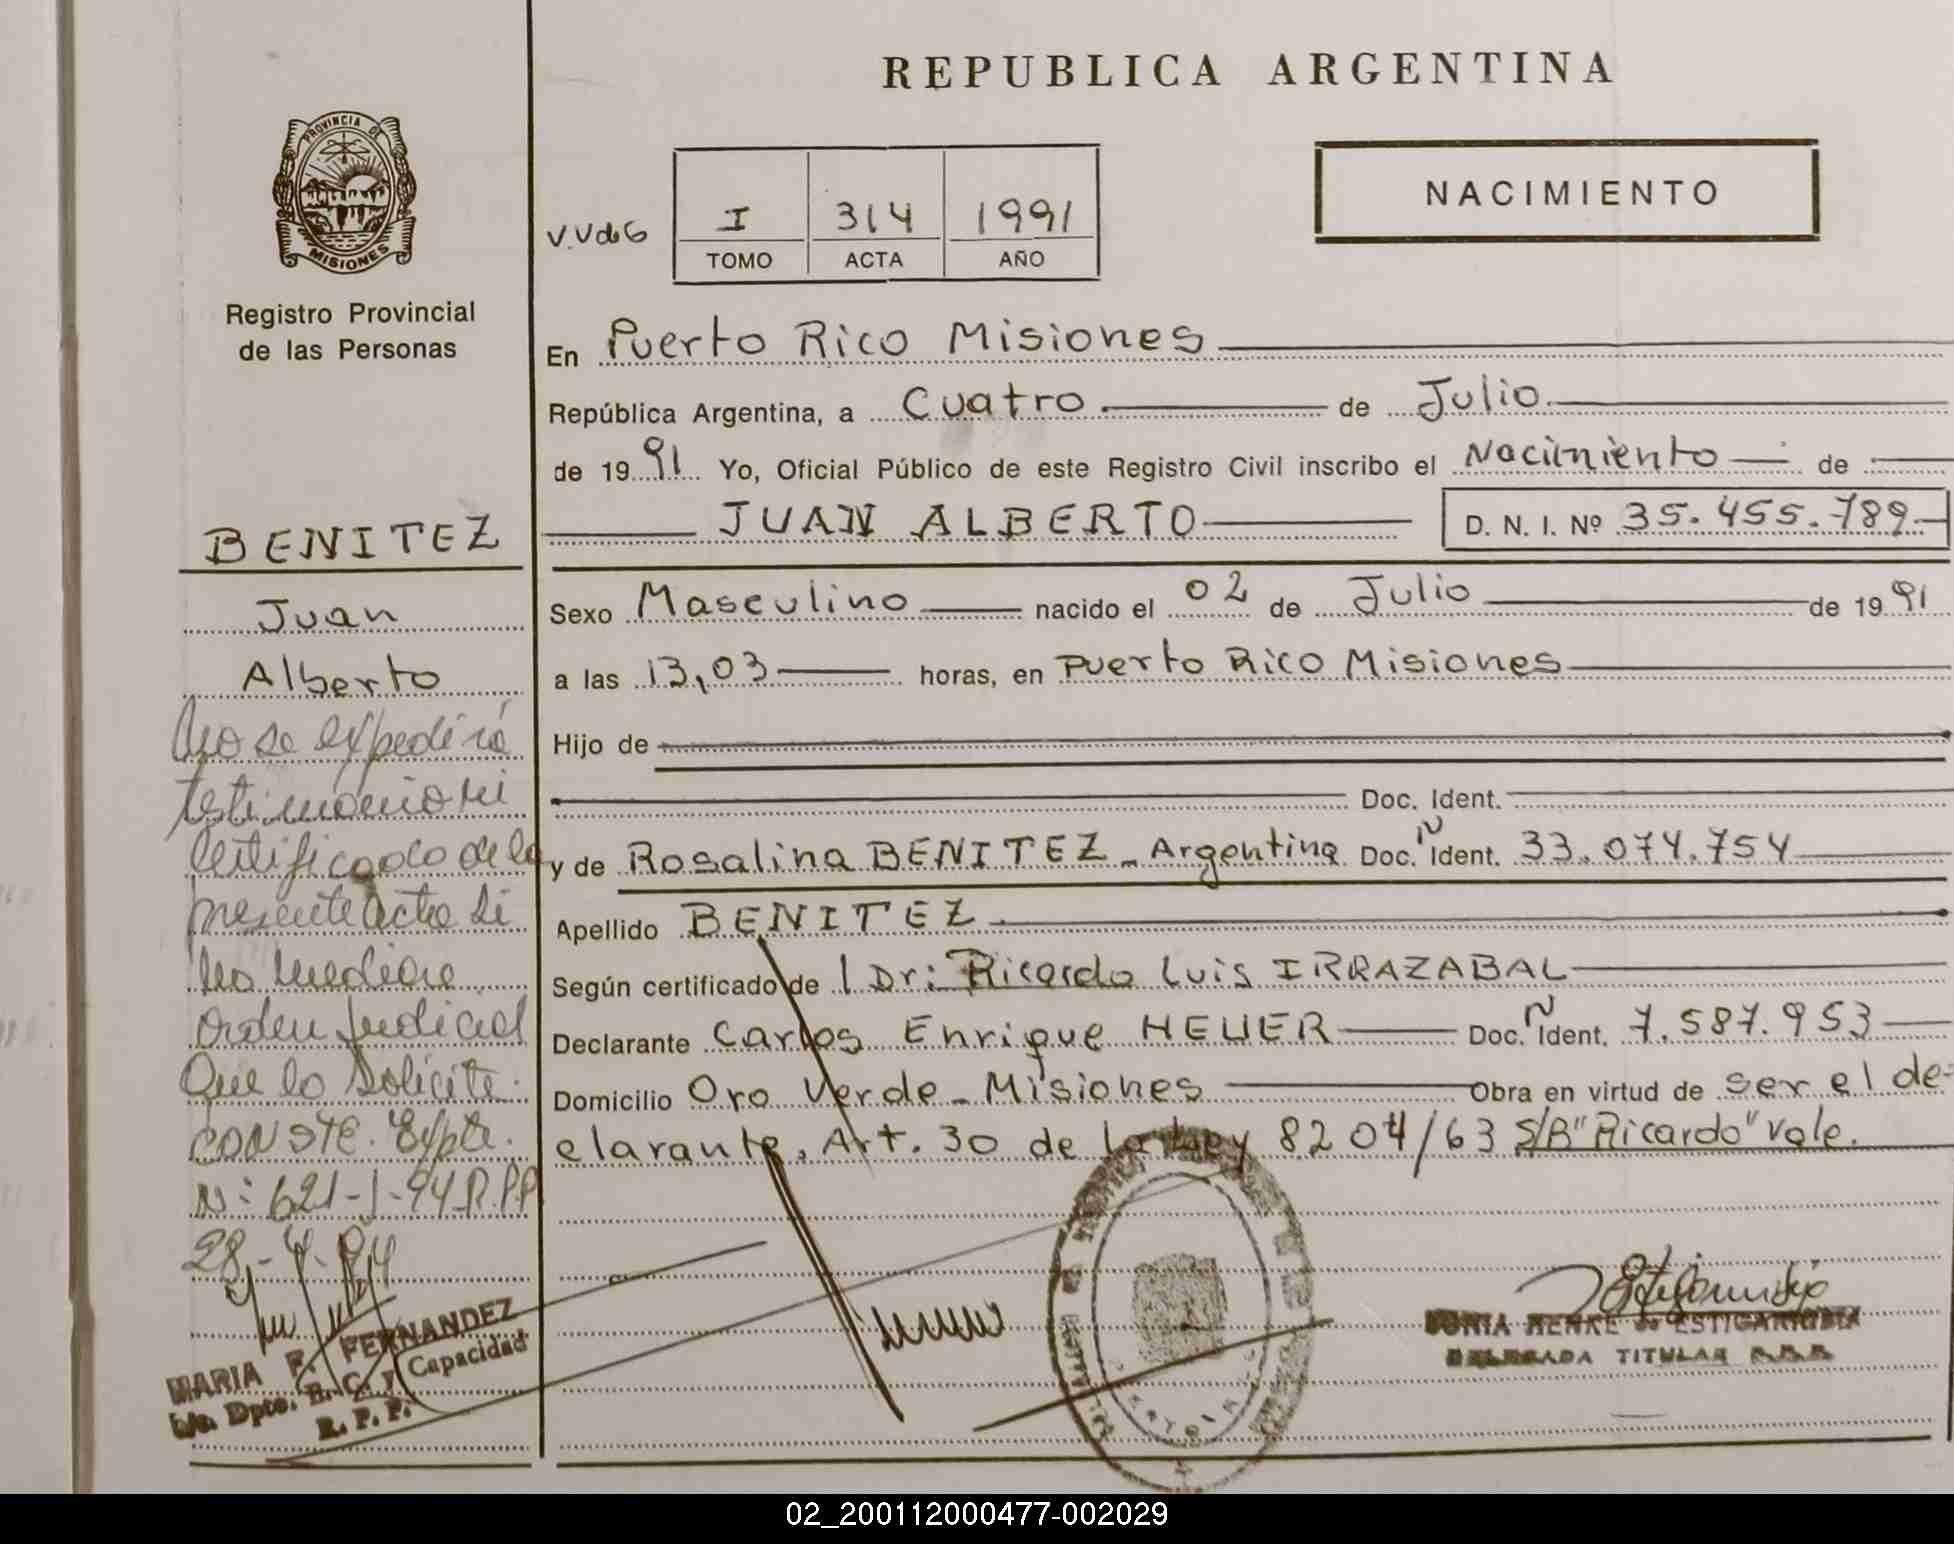 REPUBLICA ARGENTINA
PROVINCIA DE
MISIONES
Registro Provincial
de las Personas
V.V de G
I 314 1991
TOMO ACTA AÑO
NACIMIENTO
En Puerto Rico Misiones
República Argentina, a Cuatro de Julio
de 1991 Yo, Oficial Público de este Registro Civil inscribo el Nacimiento de
JUAN ALBERTO D. N. I. Nº 35.455.789
Sexo Masculino nacido el 02 de Julio de 1991
a las 13,03 horas, en Puerto Rico Misiones
Hijo de
Doc. Ident.
y de Rosalina BENITEZ - Argentina Doc. N Ident. 33.074.754
Apellido BENITEZ
Según certificado de l Dr: Ricardo Luis IRRAZABAL
Declarante Carlos Enrique HEUER Doc. N Ident. 7.587.953
Domicilio Oro Verde - Misiones Obra en virtud de ser el de=
clarante, Art. 30 de la Ley 8204/63 S/B "Ricardo" Vale.
BENITEZ
Juan
Alberto
No se expedirá
testimonio ni
Certificado de la
presente acta si
no mediare
orden judicial
Que lo Solicite.
CONSTE. Expte.
N: 621-J-94 R.P.P
28-4-94
MARIA F. FERNANDEZ
Dpto. E. C. y Capacidad
R. P. P.
SONIA HENKE de ESTIGARRIBIA
DELEGADA TITULAR R.P.P.
02_200112000477-002029